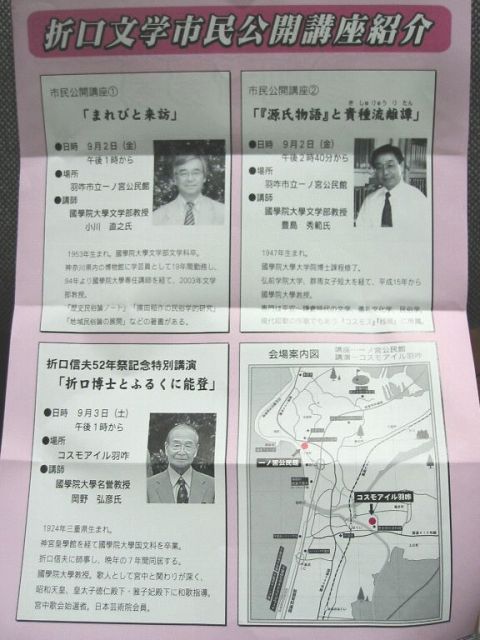 折口文学市民公開講座紹介
市民公開講座①
「まれびと来訪」
●日時 9月2日(金)
午後1時から
●場所
羽咋市立一ノ宮公民館
●講師
國學院大學文学部教授
小川 直之氏
1953年生まれ。國學院大學文学部文学科卒。
神奈川県内の博物館に学芸員として19年間勤務し、
94年より國學院専任講師を経て、2003年文学
部教授。
「歴史民俗論ノート」「摘田稲作の民俗学的研究」
「地域民俗論の展開」などの著書がある。
市民公開講座②
きしゅりゅうりたん
「『源氏物語』と貴種流離譚」
●日時 9月2日(金)
午後2時40分から
●場所
羽咋市立一ノ宮公民館
●講師
國學院大學文学部教授
豊島 秀範氏
1947年生まれ。
國學院大學大学院博士課程修了。
弘前学院大学、群馬女子短大を経て、平成15年から
國學院大學教授。
折口信夫52年祭記念特別講演
「折口博士とふるくに能登」
●日時 9月3日(土)
午後1時から
●場所
コスモアイル羽咋
●講師
國學院大學名誉教授
岡野 弘彦氏
1924年三重県生まれ。
神宮皇學館を経て國學院大學国文科を卒業。
折口信夫に師事し、晩年の7年間同居する。
國學院大學教授。歌人として宮中と関わりが深く、
昭和天皇、皇太子徳仁殿下・雅子妃殿下に和歌指導。
宮中歌会始選者。日本芸術院会員。
会場案内図
講座-一ノ宮公民館
講演-コスモアイル羽咋
一ノ宮公民館
コスモアイル羽咋